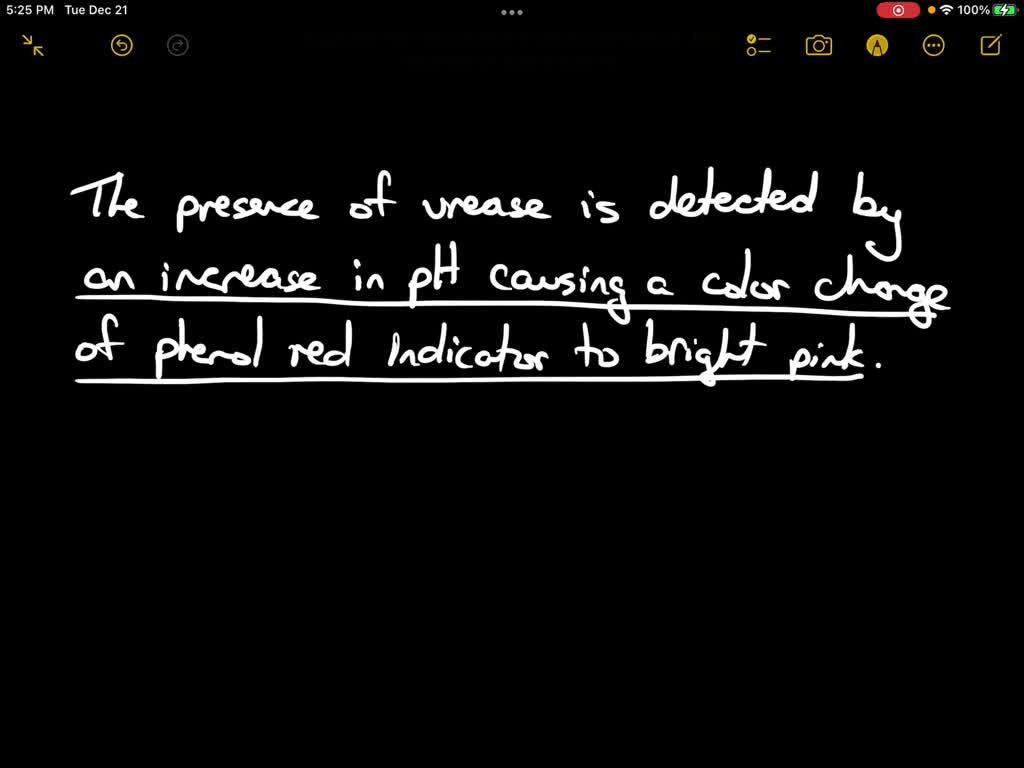 5:25 PM Tue Dec 21
100%
The presence of urease is detected by
an increase in pH causing a color change
of phenol red indicator to bright pink.